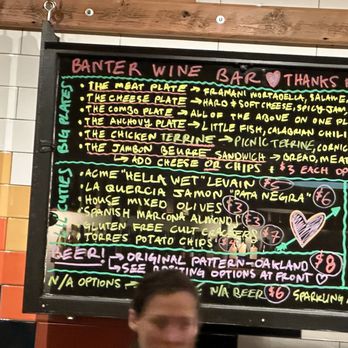 BANTER WINE BAR THANKS
BIG PLATES
• THE MEAT PLATE → FRAMANI MORTADELLA, SALAME
• THE CHEESE PLATE → HARD & SOFT CHEESE, SPICY JAM,
• THE COMBO PLATE → ALL OF THE ABOVE ON ONE PL
• THE ANCHOVY PLATE → LITTLE FISH, CALABRIAN CHILI
• THE CHICKEN TERRINE → PICNIC TERRINE, CORNIC
• THE JAMBON BEURRE SANDWICH → BREAD, MEAT
→ ADD CHEESE OR CHIPS + $3 EACH OP
CUTIES
• ACME "HELLA WET" LEVAIN $5
• LA QUERCIA JAMON "PATA NEGRA" $6
• HOUSE MIXED OLIVES $3
• SPANISH MARCONA ALMONDS
• GLUTEN FREE CULT CRACKERS $7
• TORRES POTATO CHIPS
BEER! → ORIGINAL PATTERN - OAKLAND $8
→ SEE OPTIONS AT FRONT
N/A OPTIONS N/A BEER $6 SPARKLING